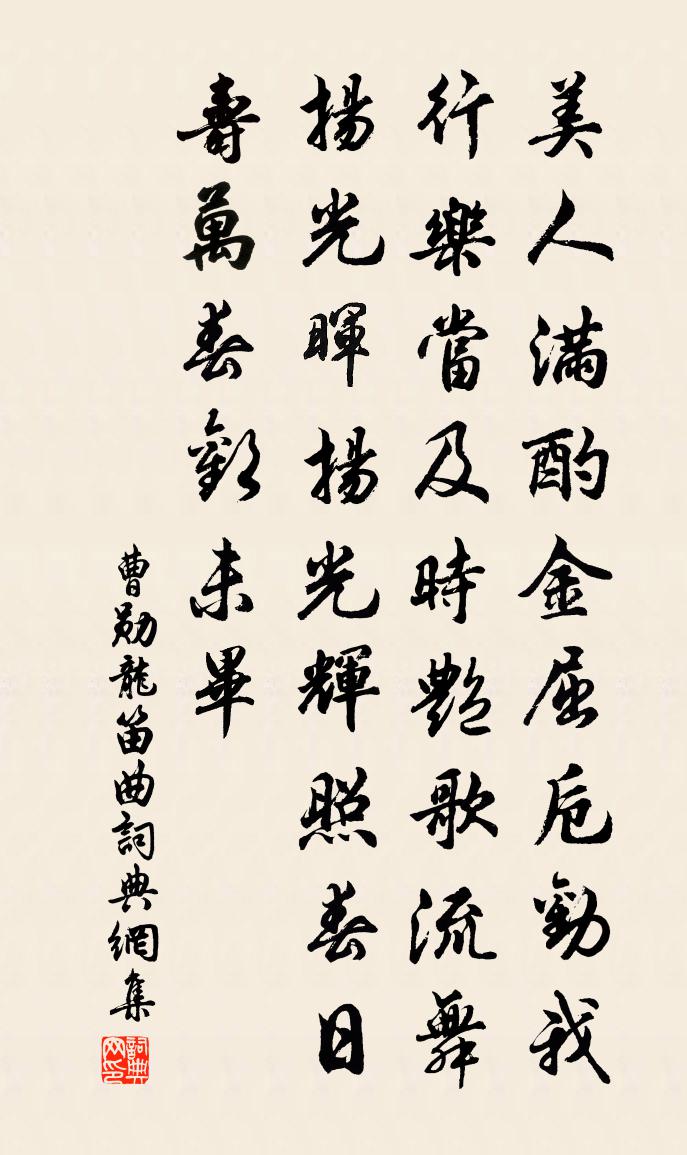 美人滿酌金屈卮勸我
行樂當及時艷歌流舞
揚光暉揚光輝照春日
壽萬春歡未畢
曹勛龍笛曲詞典網集
詞典网印